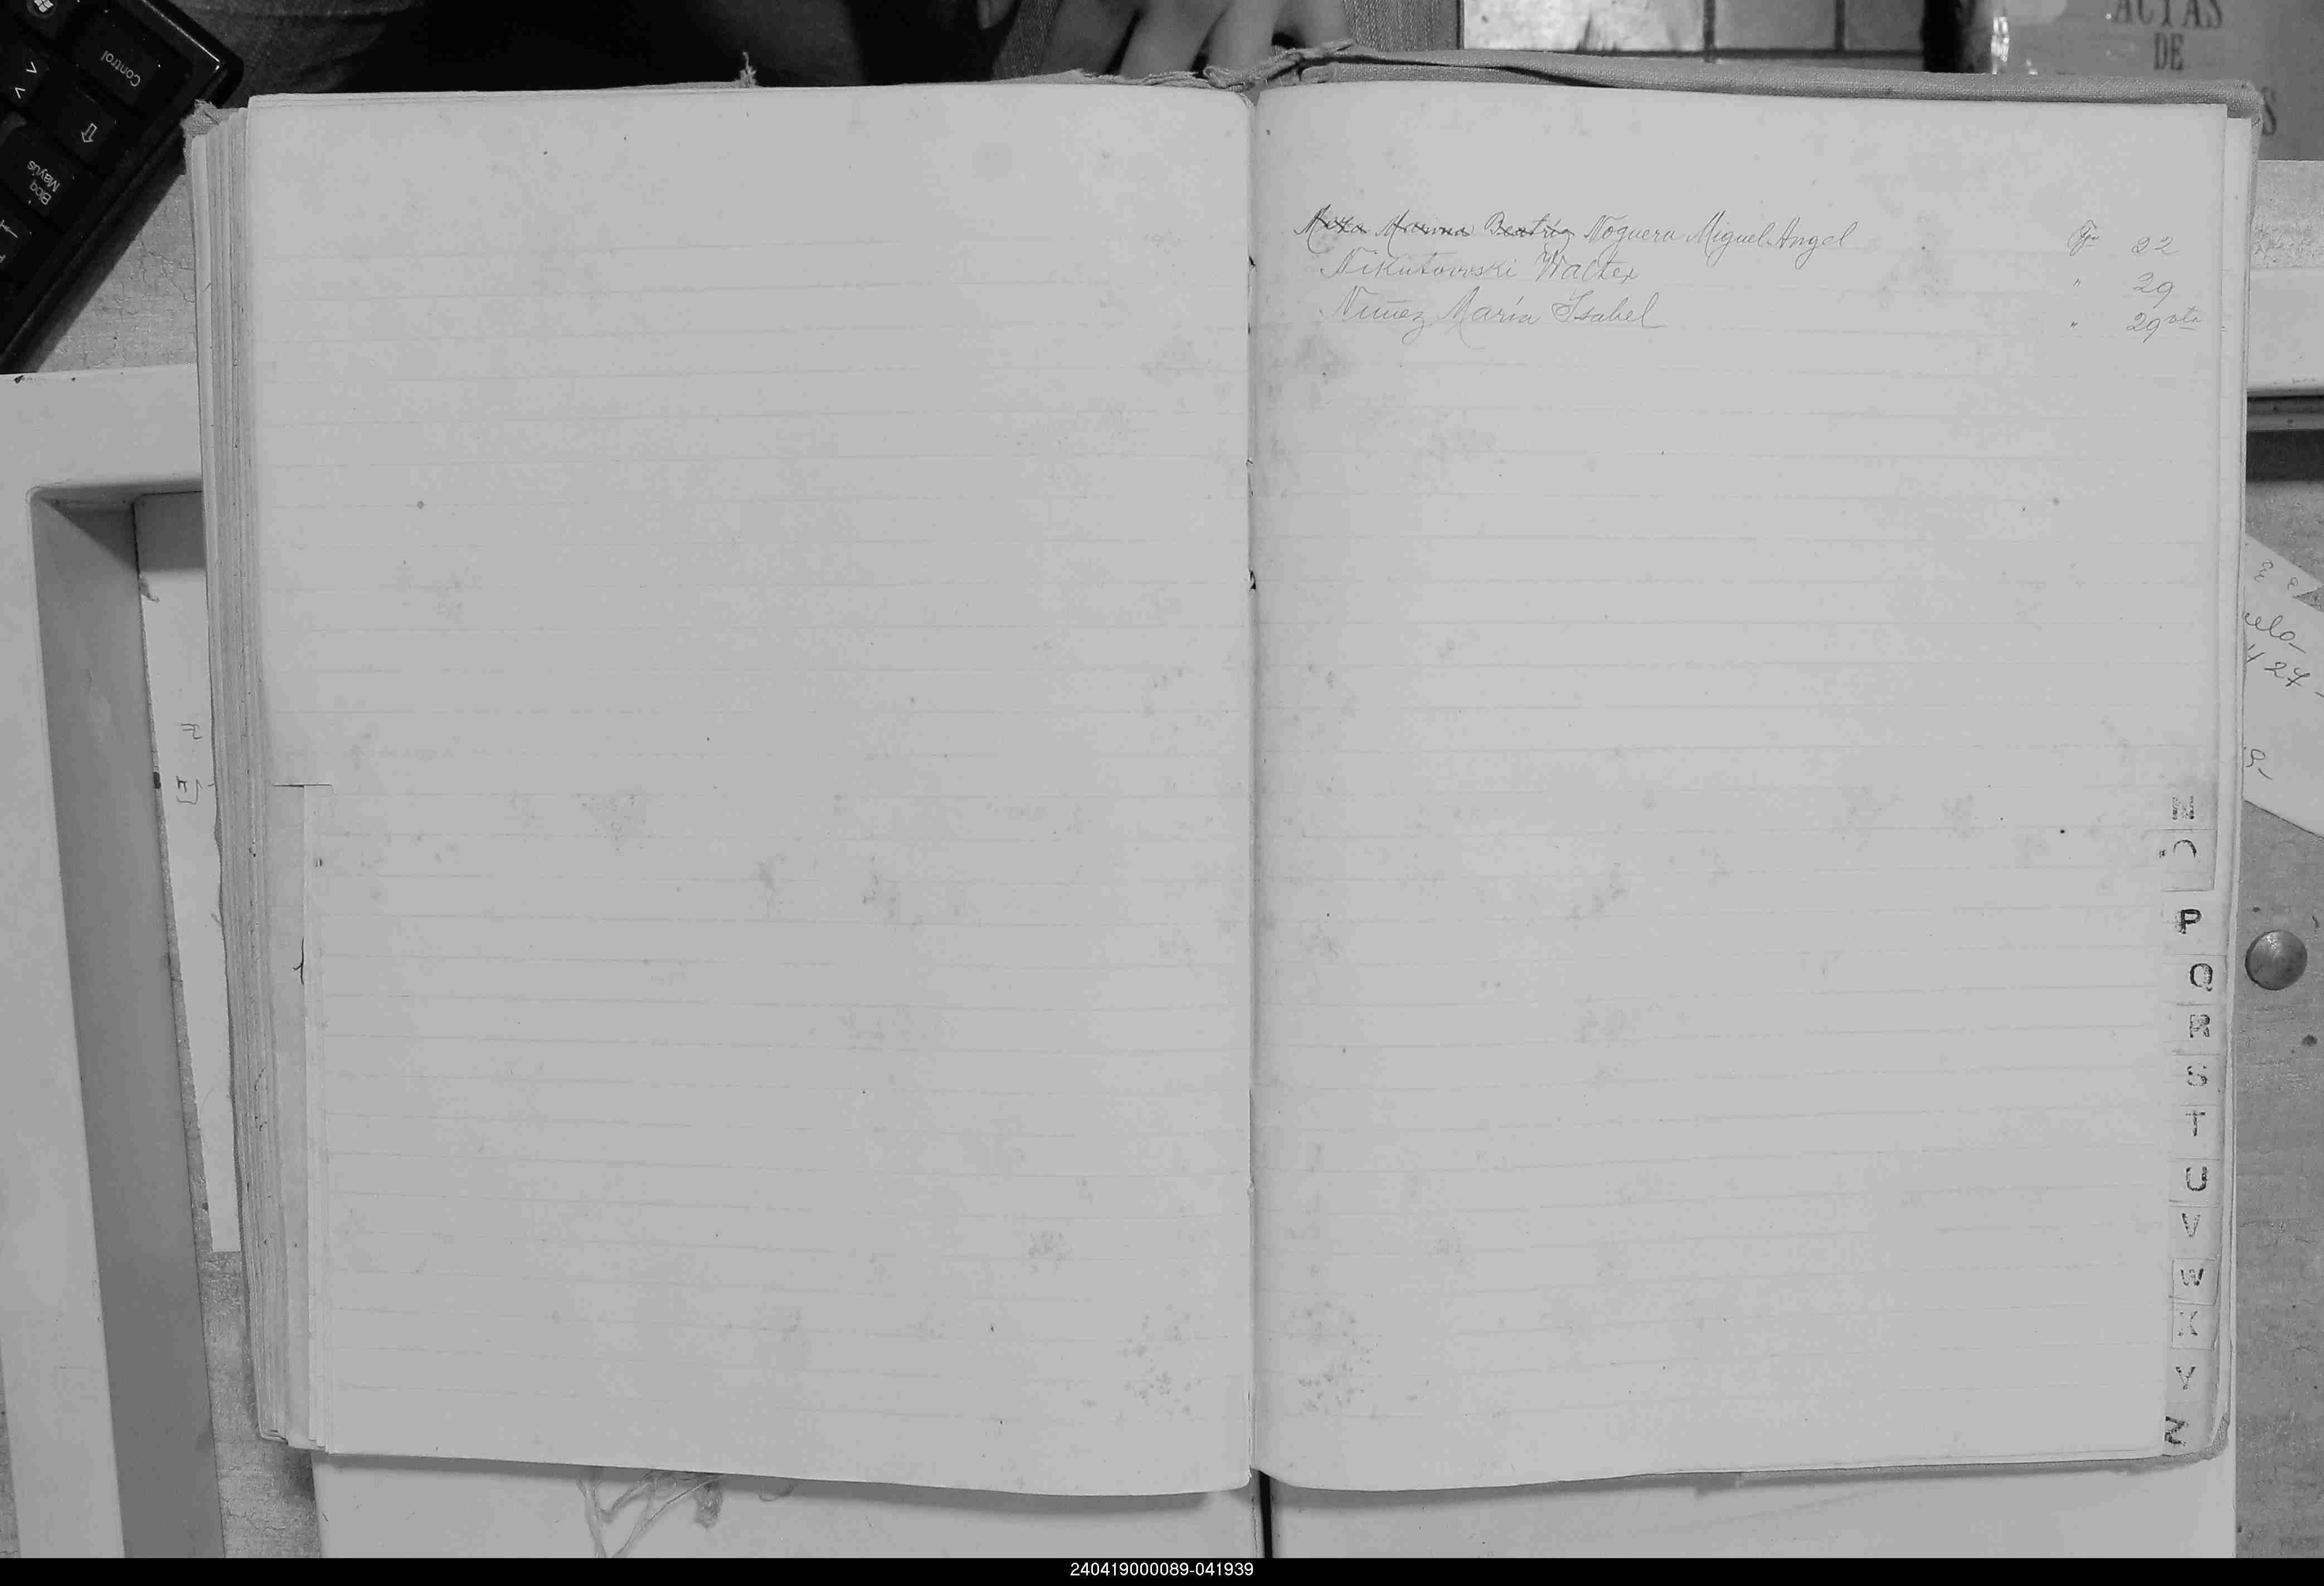 Control
Bloq
Mayús
ACTAS
DE
Beatriz Noguera Miguel Angel Fo 22
Nikutowski Walter " 29
Nuñez María Isabel " 29 vta
27
N
O
P
Q
R
S
T
U
V
W
X
Y
Z
240419000089-041939